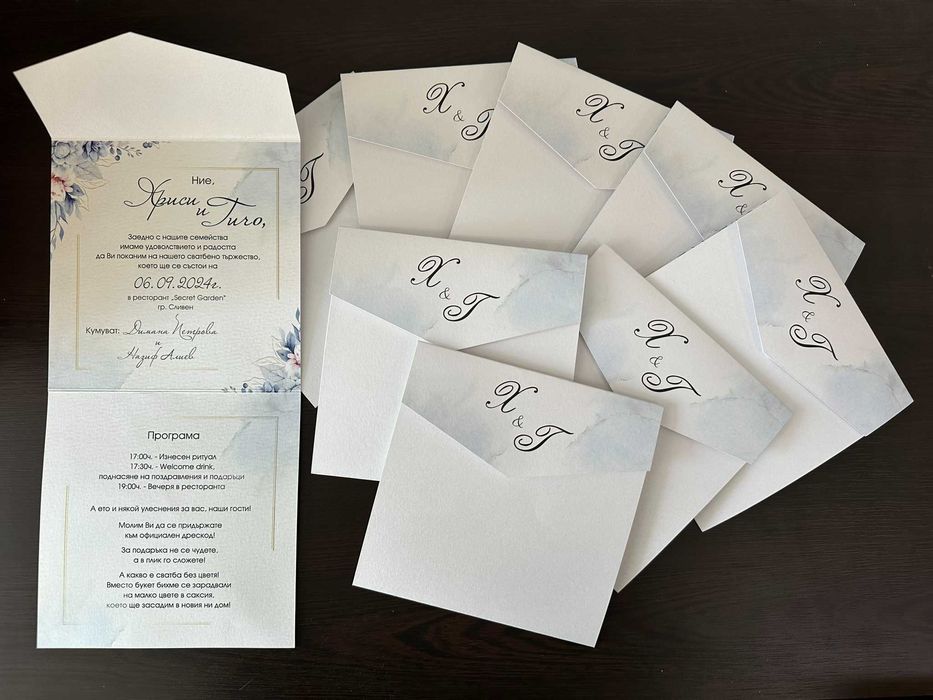 Ние,
Хриси
и
Гичо,
Заедно с нашите семейства
имаме удоволствието и радостта
да Ви поканим на нашето сватбено тържество,
което ще се състои на
06.09.2024г.
в ресторант „Secret Garden"
гр. Сливен
Кумуват: Димана Петрова
и
Назиф Алиев
Програма
17:00ч. - Изнесен ритуал
17:30ч. - Welcome drink,
поднасяне на поздравления и подаръци
19:00ч. - Вечеря в ресторанта
А ето и някой улеснения за вас, наши гости!
Молим Ви да се придържате
към официален дрескод!
За подаръка не се чудете,
а в плик го сложете!
А какво е сватба без цветя!
Вместо букет бихме се зарадвали
на малко цвете в саксия,
което ще засадим в новия ни дом!
Г
Х & Г
Х & Г
Х &
Х & Г
Х & Г
Х & Г
Х & Г